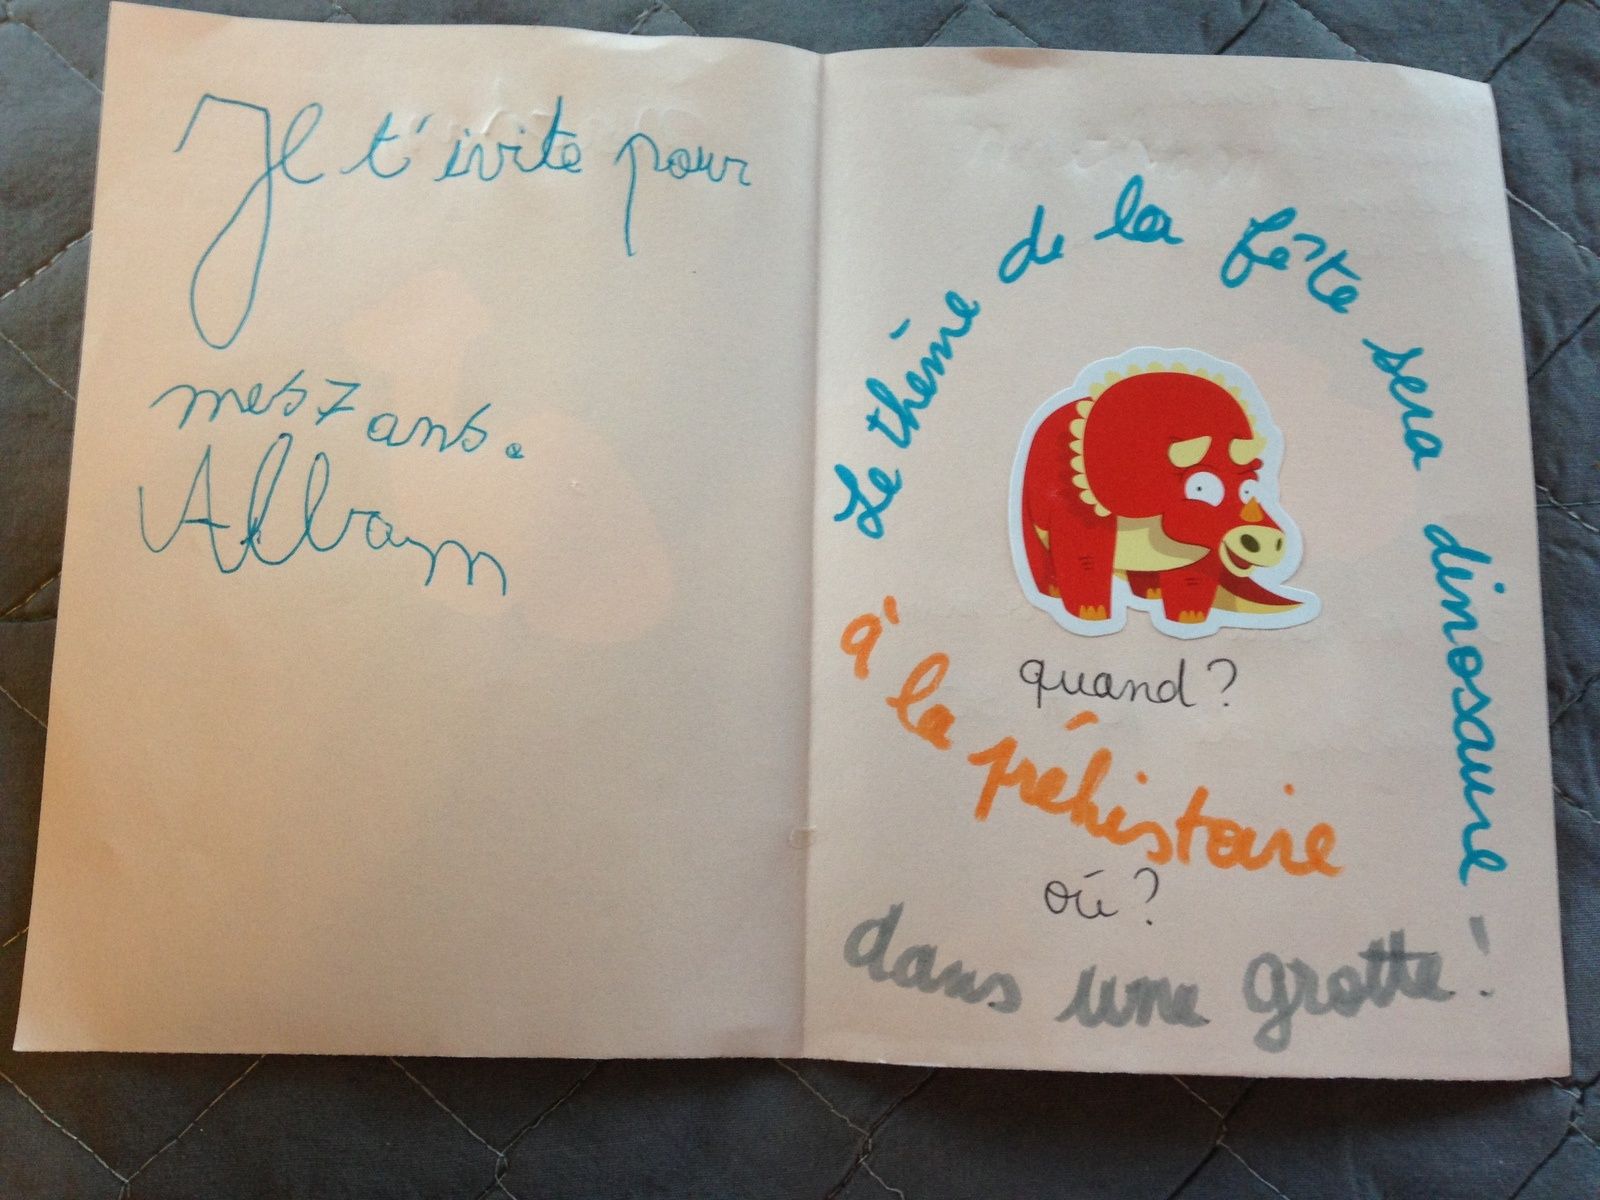 Je t'ivite pour
mes 7 ans.
Alban
Le thème de la fête sera dinosaure
quand?
à la préhistoire
où?
dans une grotte!